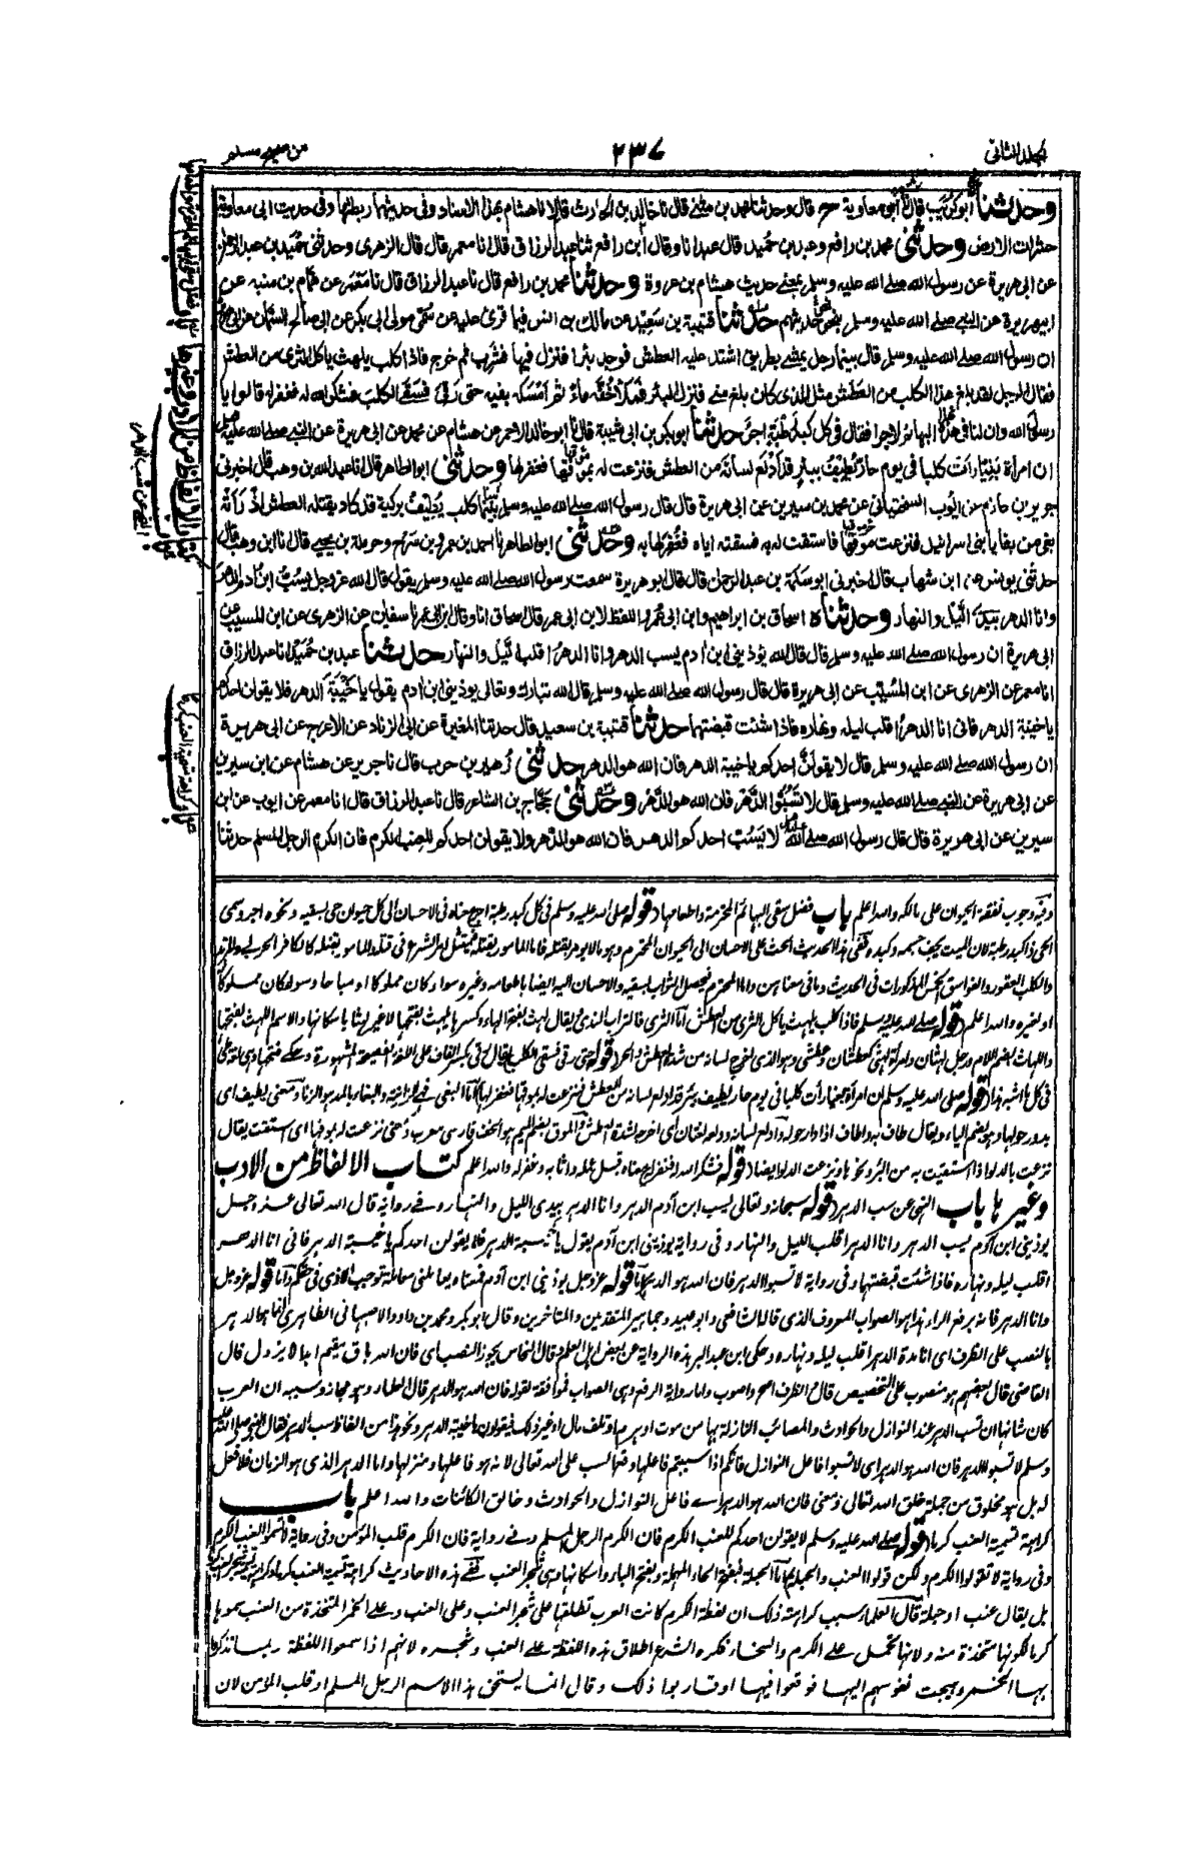 المجلد الثاني
٢٣٧
من صحيح مسلم
وحدثنا ابوكريب قال نا ابو معاوية ح قال وحدثنا محمد بن مثنى قال نا خالد بن الحارث قالا نا هشام بهذا الاسناد وفى حديثهما ربطتها وفى حديث ابى معاوية
حشرات الارض وحدثنى محمد بن رافع وعبد بن حميد قال عبد انا وقال ابن رافع ثنا عبد الرزاق قال انا معمر قال قال الزهرى وحدثنى حميد بن عبد الرحمن
عن ابى هريرة عن رسول الله صلى الله عليه وسلم بمعنى حديث هشام بن عروة وحدثنا محمد بن رافع قال نا عبد الرزاق قال نا معمر عن همام بن منبه عن
ابى هريرة عن النبى صلى الله عليه وسلم نحو حديثهم حدثنا قتيبة بن سعيد عن مالك بن انس فيما قرئ عليه عن سمى مولى ابى بكر عن ابى صالح السمان عن ابى هريرة
ان رسول الله صلى الله عليه وسلم قال بينما رجل يمشى بطريق اشتد عليه العطش فوجد بئرا فنزل فيها فشرب ثم خرج فاذا كلب يلهث ياكل الثرى من العطش
فقال الرجل لقد بلغ هذا الكلب من العطش مثل الذى كان بلغ منى فنزل البئر فملأ خفه ماء ثم امسكه بفيه حتى رقى فسقى الكلب فشكر الله له فغفر له قالوا يا
رسول الله وان لنا فى هذه البهائم لاجرا فقال فى كل كبد رطبة اجر حدثنا ابوبكر بن ابى شيبة قال نا ابو خالد الاحمر عن هشام عن محمد عن ابى هريرة عن النبى صلى الله عليه وسلم
ان امرأة بغيا رأت كلبا فى يوم حار يطيف ببئر قد ادلع لسانه من العطش فنزعت له بموقها فغفر لها وحدثنى ابو الطاهر قال انا عبد الله بن وهب قال اخبرنى
جرير بن حازم عن ايوب السختيانى عن محمد بن سيرين عن ابى هريرة قال قال رسول الله صلى الله عليه وسلم بينما كلب يطيف بركية قد كاد يقتله العطش اذ رأته
بغى من بغايا بنى اسرائيل فنزعت موقها فاستقت له به فسقته اياه فغفر لها به وحدثنى ابو الطاهر احمد بن عمرو بن سرح وحرملة بن يحيى قال انا ابن وهب قال
حدثنى يونس عن ابن شهاب قال اخبرنى ابو سلمة بن عبد الرحمن قال قال ابو هريرة سمعت رسول الله صلى الله عليه وسلم يقول قال الله عز وجل يسب ابن ادم الدهر
وانا الدهر بيدى الليل والنهار وحدثناه اسحاق بن ابراهيم وابن ابى عمر واللفظ لابن ابى عمر قال اسحاق انا وقال ابن ابى عمر نا سفيان عن الزهرى عن ابن المسيب عن
ابى هريرة ان رسول الله صلى الله عليه وسلم قال قال الله يؤذينى ابن ادم يسب الدهر وانا الدهر اقلب الليل والنهار حدثنا عبد بن حميد انا عبد الرزاق
انا معمر عن الزهرى عن ابن المسيب عن ابى هريرة قال قال رسول الله صلى الله عليه وسلم قال الله تبارك وتعالى يوذينى ابن ادم يقول يا خيبة الدهر فلا يقولن احدكم
يا خيبة الدهر فانى انا الدهر اقلب ليله ونهاره فاذا شئت قبضتهما حدثنا قتيبة بن سعيد قال حدثنا المغيرة عن ابى الزناد عن الاعرج عن ابى هريرة
ان رسول الله صلى الله عليه وسلم قال لا يقولن احدكم يا خيبة الدهر فان الله هو الدهر حدثنى زهير بن حرب قال نا جرير عن هشام عن ابن سيرين
عن ابى هريرة عن النبى صلى الله عليه وسلم قال لا تسبوا الدهر فان الله هو الدهر وحدثنى حجاج بن الشاعر قال نا عبد الرزاق قال انا معمر عن ايوب عن ابن
سيرين عن ابى هريرة قال قال رسول الله صلى الله لا يسب احدكم الدهر فان الله هو الدهر ولا يقولن احدكم للعنب الكرم فان الكرم الرجل المسلم حدثنا
وفيه وجوب نفقة الحيوان على مالكه والله اعلم باب فضل سقى البهائم المحترمة واطعامها (قوله صلى الله عليه وسلم فى كل كبد رطبة اجر) معناه فى الاحسان الى كل حيوان حى بسقيه ونحوه اجر وسمى
الحى ذا كبد رطبة لان الميت يجف جسمه وكبده ففى هذا الحديث الحث على الاحسان الى الحيوان المحترم وهو ما لا يؤمر بقتله فاما المأمور بقتله فيمتثل امر الشرع فى قتله والمأمور بقتله كالكافر الحربى والمرتد
والكلب العقور والفواسق الخمس المذكورات فى الحديث وما فى معناهن واما المحترم فيحصل الثواب بسقيه والاحسان اليه ايضا باطعامه وغيره سواء كان مملوكا او مباحا وسواء كان مملوكا
او لغيره والله اعلم (قوله صلى الله عليه وسلم فاذا كلب يلهث ياكل الثرى من العطش) اما الثرى فالتراب الندى ويقال لهث بفتح الهاء وكسرها يلهث بفتحها لا غير لهثا باسكانها والاسم اللهث بفتحها
واللهاث بضم اللام ورجل لهثان وامرأة لهثى كعطشان وعطشى وهو الذى اخرج لسانه من شدة العطش والحر (قوله حتى رقى فسقى الكلب) يقال رقى بكسر القاف على اللغة الفصيحة المشهورة وحكى فتحها وهى لغة طى
فى كل ما اشبه هذا (قوله صلى الله عليه وسلم ان امرأة بغيا رأت كلبا فى يوم حار يطيف ببئر قد ادلع لسانه من العطش فنزعت له بموقها فغفر لها) اما البغى فهى الزانية والبغاء بالمد هو الزنا ومعنى يطيف اى
يدور حولها وهو بضم الياء ويقال طاف به واطاف اذا دار حوله وادلع لسانه ودلعه لغتان اى اخرجه لشدة العطش والموق بضم الميم هو الخف فارسى معرب ومعنى نزعت له بموقها اى استقت يقال
نزعت بالدلو اذا استقيت به من البئر ونحوها ونزعت الدلو ايضا (قوله فشكر الله له فغفر له) معناه قبل عمله واثابه وغفر له والله اعلم كتاب الالفاظ من الادب
وغيرها باب النهى عن سب الدهر (قوله سبحانه وتعالى يسب ابن آدم الدهر وانا الدهر بيدى الليل والنهار) وفى رواية قال الله تعالى عز وجل
يوذينى ابن آدم يسب الدهر وانا الدهر اقلب الليل والنهار وفى رواية يوذينى ابن آدم يقول يا خيبة الدهر فلا يقولن احدكم يا خيبة الدهر فانى انا الدهر
اقلب ليله ونهاره فاذا شئت قبضتهما وفى رواية لا تسبوا الدهر فان الله هو الدهر اما قوله عز وجل يوذينى ابن آدم فمعناه يعاملنى معاملة توجب الاذى فى حقكم واما قوله عز وجل
وانا الدهر فانه برفع الراء هذا هو الصواب المعروف الذى قاله الشافعى وابو عبيد وجماهير المتقدمين والمتاخرين وقال ابو بكر ومحمد بن داود الاصبهانى الظاهرى انما هو الدهر
بالنصب على الظرف اى انا مدة الدهر اقلب ليله ونهاره وحكى ابن عبد البر هذه الرواية عن بعض اهل العلم وقال النحاس يجوز النصب اى فان الله باق مقيم ابدا لا يزول قال
القاضى قال بعضهم هو منصوب على التخصيص قال والظرف اصح واصوب واما رواية الرفع وهى الصواب فموافقة لقوله فان الله هو الدهر قال العلماء وهو مجاز وسببه ان العرب
كان شانها ان تسب الدهر عند النوازل والحوادث والمصائب النازلة بها من موت او هرم او تلف مال او غير ذلك فيقولون يا خيبة الدهر ونحو هذا من الفاظ سب الدهر فقال النبى صلى الله عليه
وسلم لا تسبوا الدهر فان الله هو الدهر اى لا تسبوا فاعل النوازل فانكم اذا سببتم فاعلها وقع السب على الله تعالى لانه هو فاعلها ومنزلها واما الدهر الذى هو الزمان فلا فعل
له بل هو مخلوق من جملة خلق الله تعالى ومعنى فان الله هو الدهر اى فاعل النوازل والحوادث وخالق الكائنات والله اعلم باب
كراهة تسمية العنب كرما (قوله صلى الله عليه وسلم لا يقولن احدكم للعنب الكرم فان الكرم الرجل المسلم وفى رواية فان الكرم قلب المؤمن وفى رواية لا تسموا العنب الكرم
وفى رواية لا تقولوا الكرم ولكن قولوا العنب والحبلة) اما الحبلة فبفتح الحاء المهملة وبفتح الباء واسكانها وهى شجر العنب ففى هذه الاحاديث كراهة تسمية العنب كرما وكراهة تسمية شجر العنب كرما
بل يقال عنب او حبلة قال العلماء سبب كراهة ذلك ان لفظة الكرم كانت العرب تطلقها على شجر العنب وعلى العنب وعلى الخمر المتخذة من العنب سموها
كرما لكونها متخذة منه ولانها تحمل على الكرم والسخاء فكره الشرع اطلاق هذه اللفظة على العنب وشجره لانهم اذا سمعوا اللفظة ربما تذكروا
بها الخمر وهيجت نفوسهم اليها فوقعوا فيها او قاربوا ذلك وقال انما يستحق هذا الاسم الرجل المسلم او قلب المؤمن لان
باب فضل سقى البهائم المحترمة واطعامها
كتاب الالفاظ من الادب وغيرها
باب النهى عن سب الدهر
باب كراهة تسمية العنب كرما